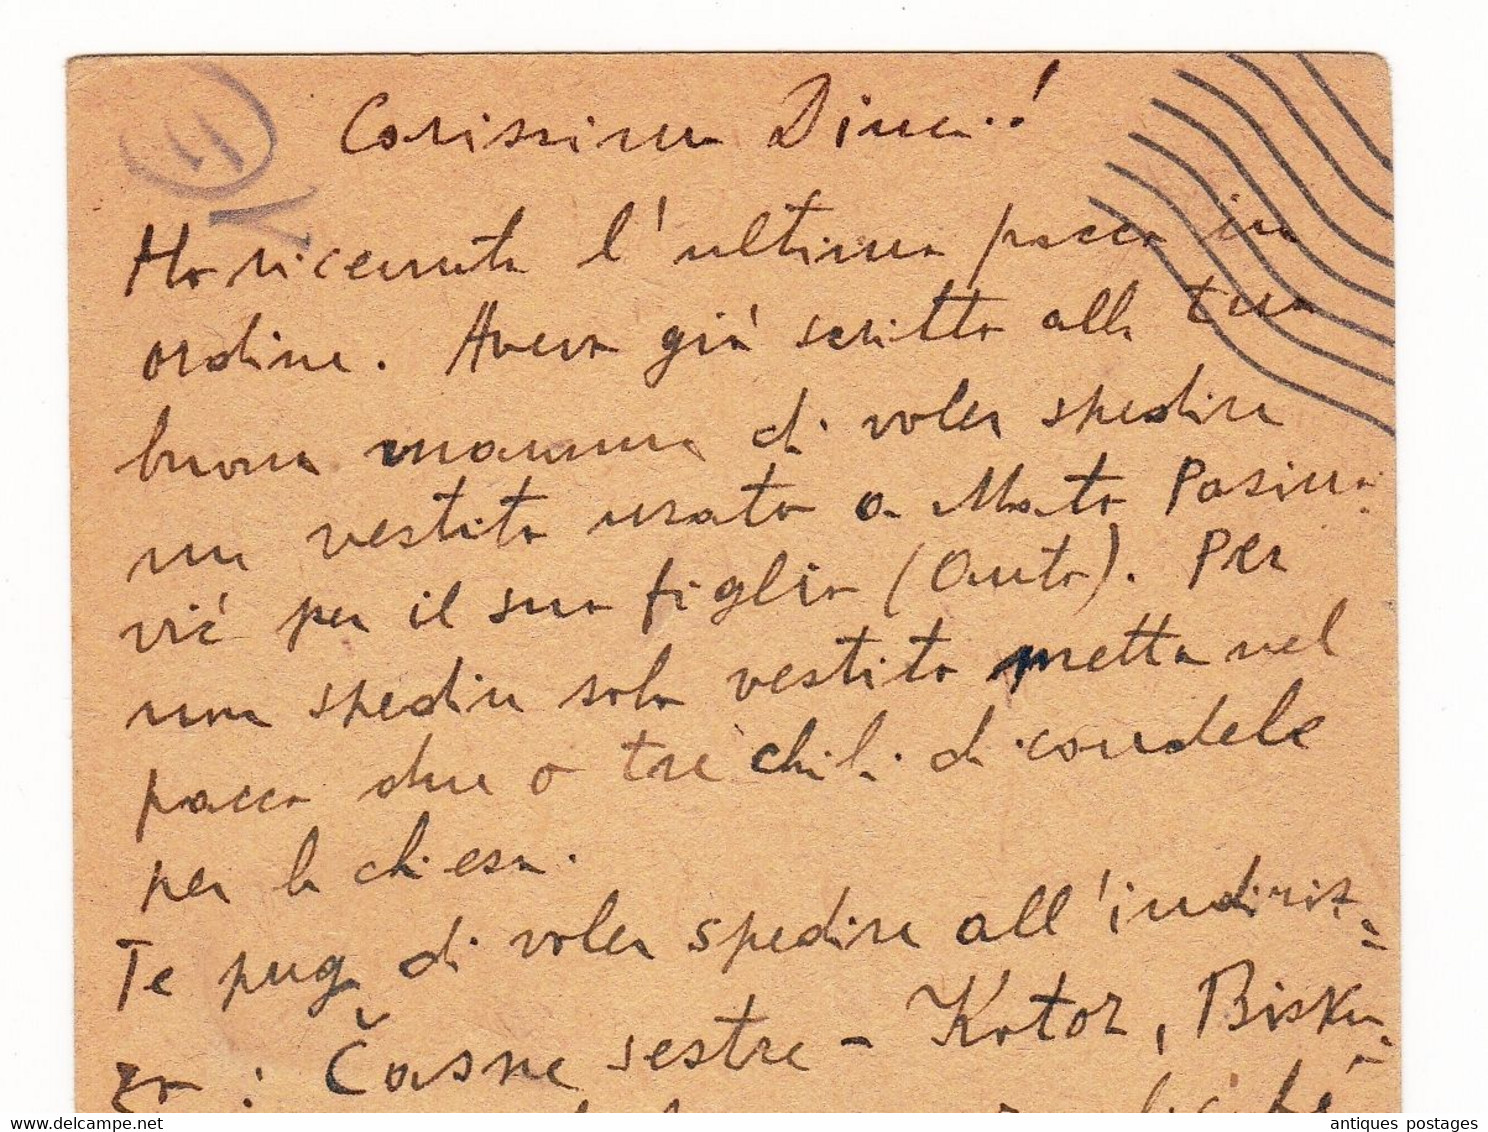 Carissima Dina!
Ho ricevuto l'ultimo pacco in
ordine. Avevo già scritto alla tua
buona mamma di voler spedire
un vestito usato a Mato Pasino-
vić per il suo figlio (Anto). Per
non spedire solo vestito metta nel
pacco due o tre chili di candele
per la chiesa.
Te pugo di voler spedire all'indiriz=
zo: Časne sestre - Kotor, Bisku-
antiques postages